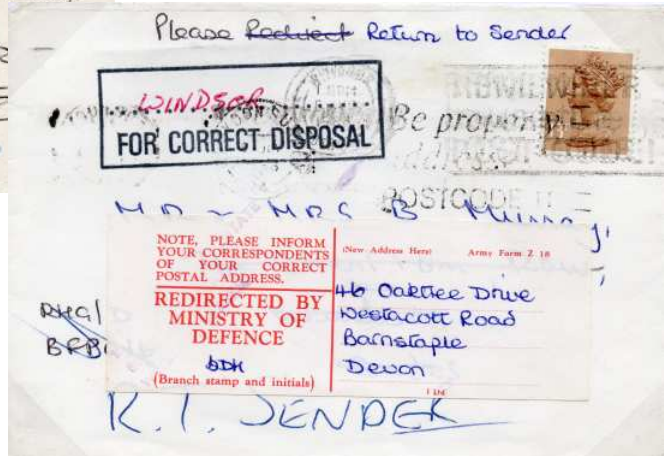 Please Redirect Return to Sender
WINDSOR
FOR CORRECT DISPOSAL
Be properly
address
POSTCODE IT
MR ~ MRS B
NOTE, PLEASE INFORM
YOUR CORRESPONDENTS
OF YOUR CORRECT
POSTAL ADDRESS.
REDIRECTED BY
MINISTRY OF
DEFENCE
(Branch stamp and initials)
(New Address Here) Army Form Z 18
46 Oaktree Drive
Westacott Road
Barnstaple
Devon
RHG/
R.T. SENDER